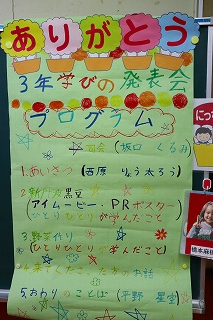 ありがとう
3年学びの発表会
プログラム
司会(坂口 くるみ)
1.あいさつ(西原 りょう太ろう)
黒豆
(アイムービー・PRポスター)
ひとりひとりが学んだこと
3.野菜作り
(ひとりひとりが学んだこと)
4.来てくださった方のお話
5.おわりのことば(平野 星空)
橋本麻